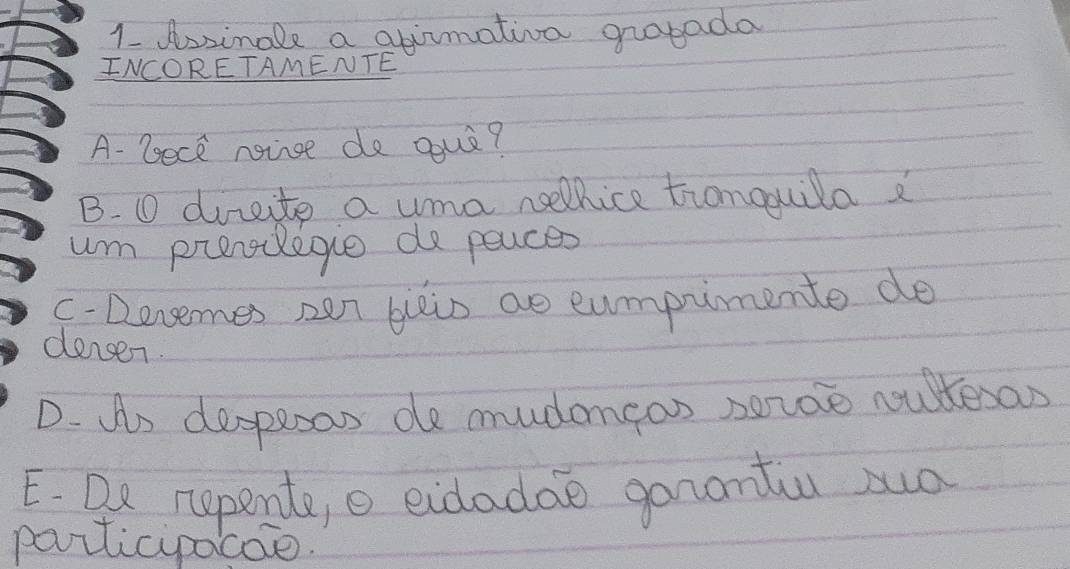 1- Assinale a afirmativa grafada
INCORETAMENTE
A- Você vive de quê?
B- O direito a uma velhice tranquila é
um previlégio de poucos
C- Devemos ser fiéis ao cumprimento do
dever.
D- As despesas de mudanças serão vultosas
E- De repente, o cidadão garantiu sua
participação.